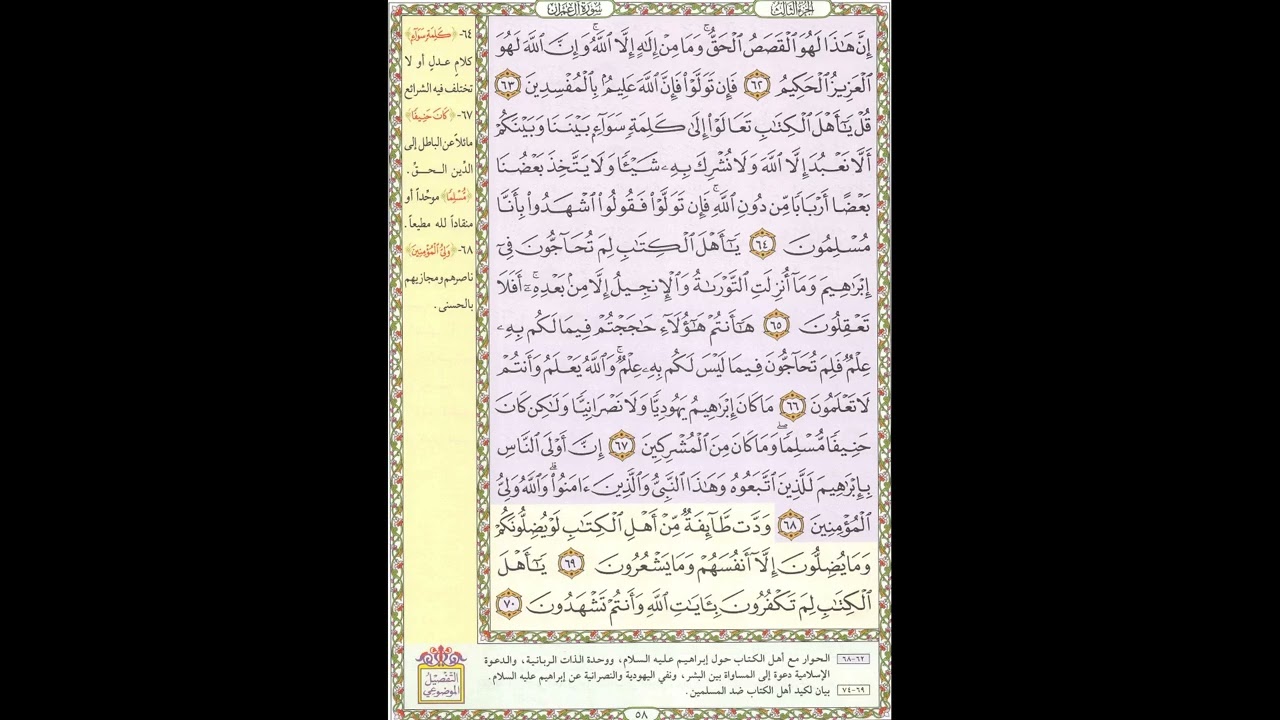 الجزء الثالث
سورة آل عمران
إِنَّ هَٰذَا لَهُوَ ٱلْقَصَصُ ٱلْحَقُّ ۚ وَمَا مِنْ إِلَٰهٍ إِلَّا ٱللَّهُ ۚ وَإِنَّ ٱللَّهَ لَهُوَ
ٱلْعَزِيزُ ٱلْحَكِيمُ ٦٢ فَإِن تَوَلَّوْا۟ فَإِنَّ ٱللَّهَ عَلِيمٌۢ بِٱلْمُفْسِدِينَ ٦٣
قُلْ يَٰٓأَهْلَ ٱلْكِتَٰبِ تَعَالَوْا۟ إِلَىٰ كَلِمَةٍ سَوَآءٍۭ بَيْنَنَا وَبَيْنَكُمْ
أَلَّا نَعْبُدَ إِلَّا ٱللَّهَ وَلَا نُشْرِكَ بِهِۦ شَيْـًٔا وَلَا يَتَّخِذَ بَعْضُنَا
بَعْضًا أَرْبَابًا مِّن دُونِ ٱللَّهِ ۚ فَإِن تَوَلَّوْا۟ فَقُولُوا۟ ٱشْهَدُوا۟ بِأَنَّا
مُسْلِمُونَ ٦٤ يَٰٓأَهْلَ ٱلْكِتَٰبِ لِمَ تُحَآجُّونَ فِىٓ
إِبْرَٰهِيمَ وَمَآ أُنزِلَتِ ٱلتَّوْرَىٰةُ وَٱلْإِنجِيلُ إِلَّا مِنۢ بَعْدِهِۦٓ ۚ أَفَلَا
تَعْقِلُونَ ٦٥ هَٰٓأَنتُمْ هَٰٓؤُلَآءِ حَٰجَجْتُمْ فِيمَا لَكُم بِهِۦ
عِلْمٌ فَلِمَ تُحَآجُّونَ فِيمَا لَيْسَ لَكُم بِهِۦ عِلْمٌ ۚ وَٱللَّهُ يَعْلَمُ وَأَنتُمْ
لَا تَعْلَمُونَ ٦٦ مَا كَانَ إِبْرَٰهِيمُ يَهُودِيًّا وَلَا نَصْرَانِيًّا وَلَٰكِن كَانَ
حَنِيفًا مُّسْلِمًا ۖ وَمَا كَانَ مِنَ ٱلْمُشْرِكِينَ ٦٧ إِنَّ أَوْلَى ٱلنَّاسِ
بِإِبْرَٰهِيمَ لَلَّذِينَ ٱتَّبَعُوهُ وَهَٰذَا ٱلنَّبِىُّ وَٱلَّذِينَ ءَامَنُوا۟ ۗ وَٱللَّهُ وَلِىُّ
ٱلْمُؤْمِنِينَ ٦٨ وَدَّت طَّآئِفَةٌ مِّنْ أَهْلِ ٱلْكِتَٰبِ لَوْ يُضِلُّونَكُمْ
وَمَا يُضِلُّونَ إِلَّآ أَنفُسَهُمْ وَمَا يَشْعُرُونَ ٦٩ يَٰٓأَهْلَ
ٱلْكِتَٰبِ لِمَ تَكْفُرُونَ بِـَٔايَٰتِ ٱللَّهِ وَأَنتُمْ تَشْهَدُونَ ٧٠
٦٤- ﴿كَلِمَةٍ سَوَآءٍ﴾
كلامِ عدلٍ أو لا
تختلف فيه الشرائع
٦٧- ﴿كَانَ حَنِيفًا﴾
مائلاً عن الباطل إلى
الدِّين الحقِّ .
﴿مُّسْلِمًا﴾ موحِّداً أو
منقاداً لله مطيعاً .
٦٨- ﴿وَلِىُّ ٱلْمُؤْمِنِينَ﴾
ناصرهم ومجازيهم
بالحسنى .
٦٢-٦٨ الحوار مع أهل الكتاب حول إبراهيم عليه السلام، ووحدة الذات الربانية، والدعوة
الإسلامية دعوة إلى المساواة بين البشر، ونفي اليهودية والنصرانية عن إبراهيم عليه السلام.
٦٩-٧٤ بيان لكيد أهل الكتاب ضد المسلمين .
التفصيل
الموضوعي
٥٨